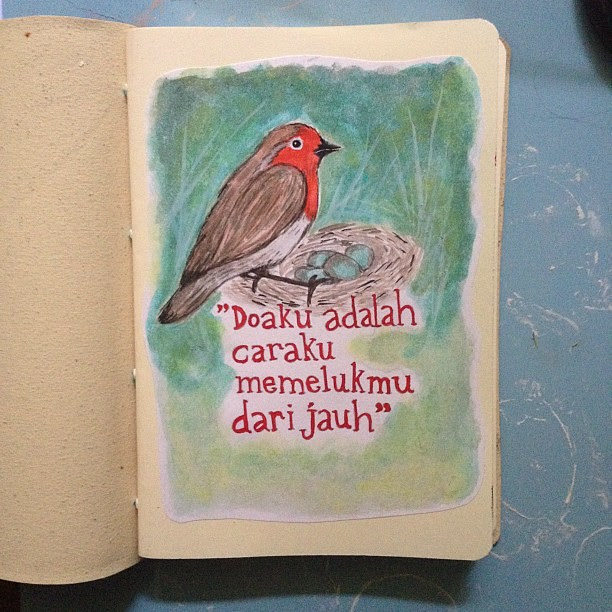 "Doaku adalah
caraku
memelukmu
dari jauh"